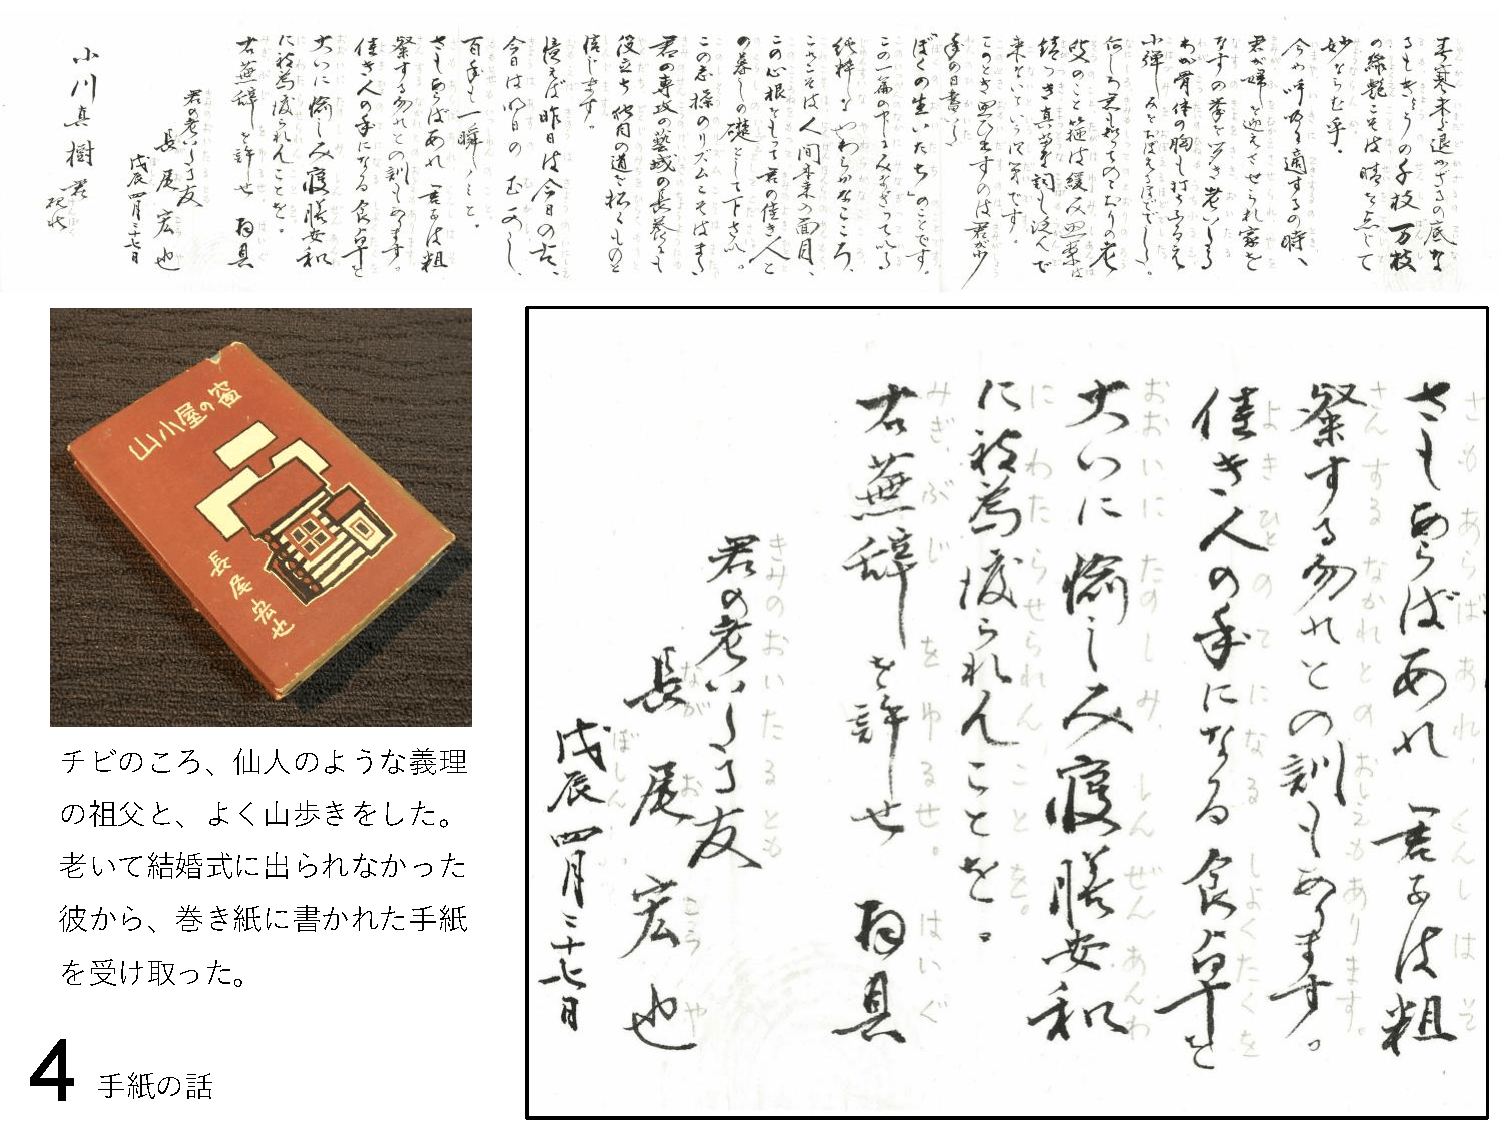 春寒未だ退かざるの底な
るもきょうの千枝万枝
の綺艶こそは晴を点じて
妙ならむ乎。
今や 適するの時、
君が婦を迎えさせられ家を
なすの挙を 老い
わが骨体の胸も打ちふるえ
何しろ君も知ってのとおりの老
叟のこと箍は緩み思案は
来ないという次第です。
このとき思い出すのは君が少
年の日書いた
ぼくの生いたち」のことです。
この一篇の中にみなぎっている
純粋な やわらかなこころ、
これこそは人間本来の面目、
この心根をもって君の佳き人と
の暮しの礎として下さい。
この志操のリズムこそはまた
君の専攻の 域の長養にも
役立ち 他日の道を拓くものと
信じます。
憶えば昨日は今日の古、
今日は明日の
百年も一瞬
さもあらばあれ 君子は粗
粲する勿れとの訓もあります。
佳き人の手になる食卓を
大いに愉しみ寝膳安和
に被為渡られんことを。
右蕪辞を許しせ 拝具
君の老いたる友
長尾宏也
戊辰四月二十七日
小川真樹君
山小屋の窗
長尾宏也
さもあらばあれ 君子は粗
さもあらばあれ、くんしはそ
粲する勿れとの訓もあります。
さんするなかれとのおしえもあります。
佳き人の手になる食卓を
よきひとのてになるしょくたくを
大いに愉しみ寝膳安和
おおいにたのしみ、しんぜんあんわ
に被為渡られんことを。
にわたらせられんことを。
右蕪辞を許しせ 拝具
みぎ、ぶじをゆるせ。はいぐ
君の老いたる友
きみのおいたるとも
長尾宏也
ながおこうや
戊辰四月二十七日
ぼしん
チビのころ、仙人のような義理
の祖父と、よく山歩きをした。
老いて結婚式に出られなかった
彼から、巻き紙に書かれた手紙
を受け取った。
4 手紙の話